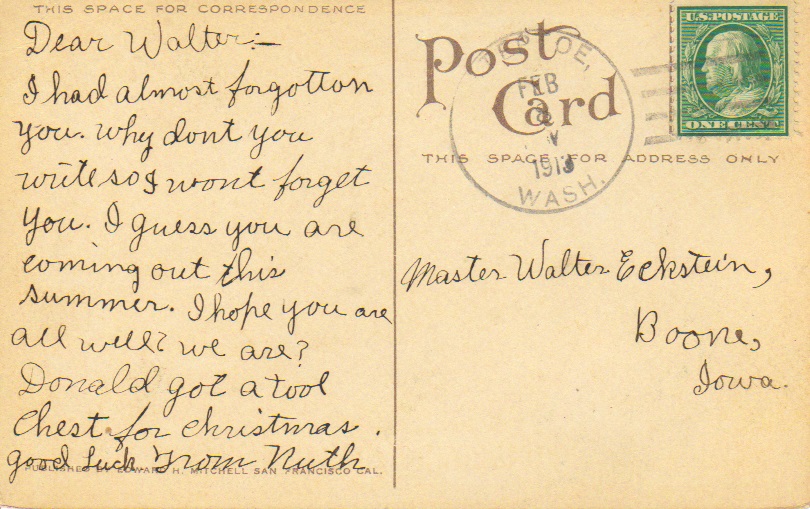 THIS SPACE FOR CORRESPONDENCE
Dear Walter:—
I had almost forgotton
you. Why dont you
write so I wont forget
you. I guess you are
coming out this
summer. I hope you are
all well? we are?
Donald got a tool
Chest for christmas.
good luck. From Ruth
PUBLISHED BY EDWARD H. MITCHELL SAN FRANCISCO CAL.
Post
Card
THIS SPACE FOR ADDRESS ONLY
OE,
FEB
8
1913
WASH.
U.S. POSTAGE
ONE CENT
Master Walter Eckstein,
Boone,
Iowa.